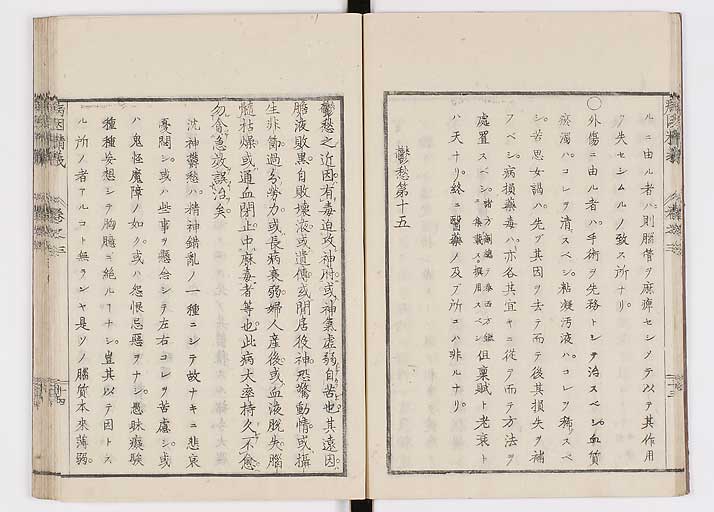 ルニ由ル者ハ則腦管ヲ麻痺セシメテ以テ其作用
ヲ失セシムルノ致ス所ナリ。
〇外傷ニ由ル者ハ。手術ヲ先務トシテ治スベシ。血質
瘀濁ハ。コレヲ清スベシ。粘凝汚液ハ。コレヲ稀スベ
シ。苦思女謁ハ。先ヅ其因ヲ去テ而テ後其損失ヲ補
フベシ。病損藥毒ハ。亦各其宜キニ從テ而テ方法ヲ
處置スベシ。 但稟賦ト老衰ト
ハ天ナリ。終ニ醫藥ノ及ブ所ニハ非ルナリ。
鬱愁第十五
鬱愁之近因。有毒迫攻神府。或神氣虛弱自苦也。其遠因。
膽液敗黑。自敗壞液。或遺傳。或閒居役神。恐驚動情。或攝
生非節。過分勞力。或長病衰弱。婦人産後。或血液脫失。腦
髓枯燥。或通血閉止。中麻毒者等也。此病大率持久不愈。
勿倉急放誤治矣。
沈神鬱愁ハ。精神錯亂ノ一種ニシテ故ナキニ悲哀
憂悶シ。或ハ些事ヲ懸念シテ左右コレヲ苦慮シ。或
ハ鬼怪魔障ノ如ク。或ハ怨恨忌惡ヲナシ。愚昧癡騃
種種妄想シテ胸臆ニ絶ルヿナシ。豈其以テ因トス
ル所ノ者アルコト無ランヤ是ソノ腦質本來薄弱。